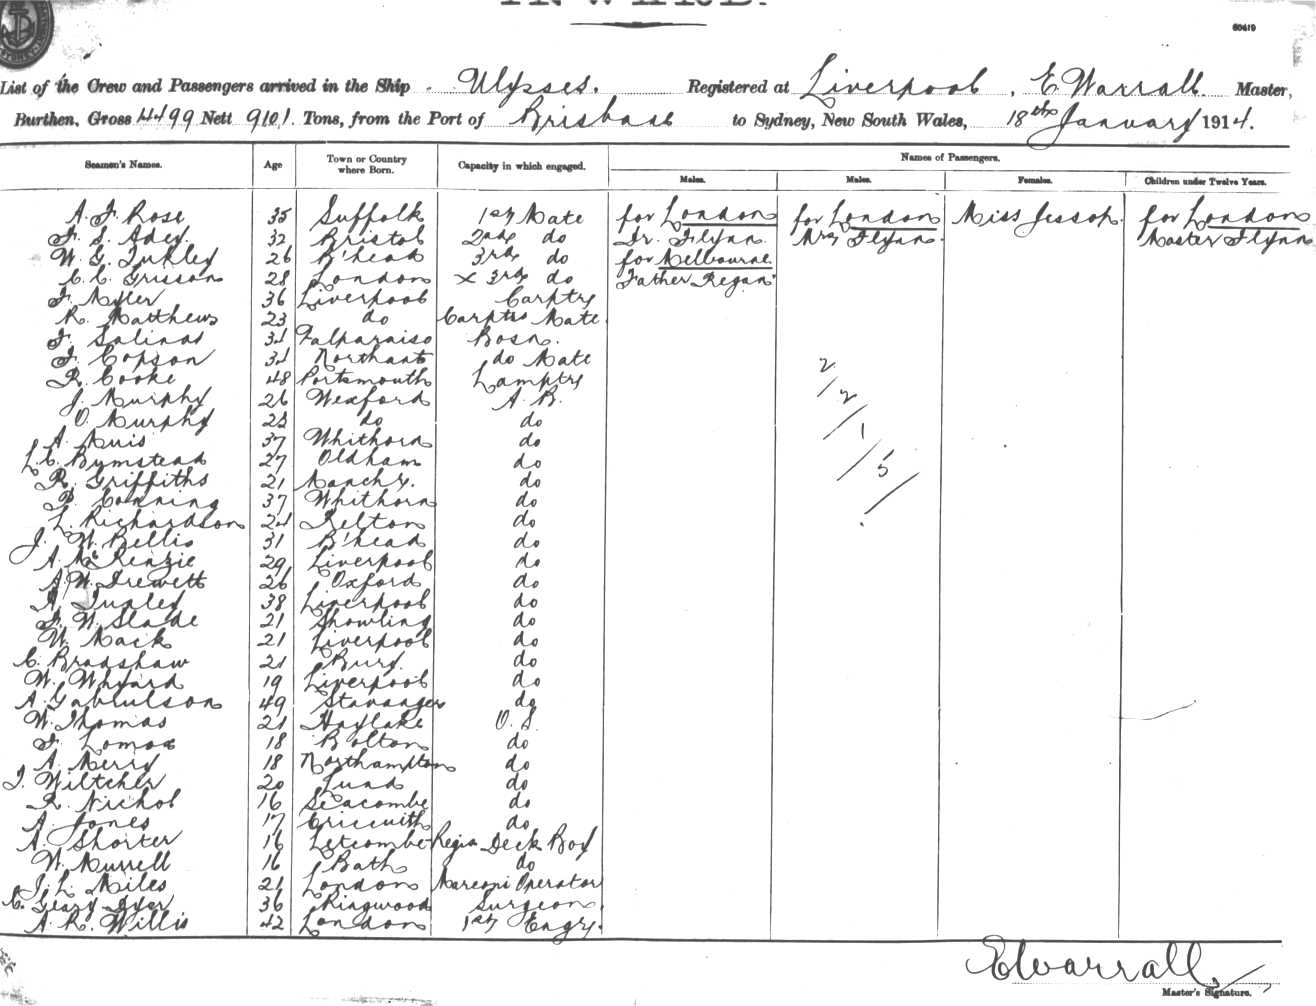 60419
List of the Crew and Passengers arrived in the Ship Ulysses. Registered at Liverpool, E. Warrall. Master,
Burthen, Gross 4499 Nett 9101. Tons, from the Port of Brisbane to Sydney, New South Wales, 18th January 1914.
Seamen's Names. Age Town or Country where Born. Capacity in which engaged. Names of Passengers.
Males. Males. Females. Children under Twelve Years.
A. F. Rose 35 Suffolk 1st Mate for London for London Miss Jessop. for London
F. S. Adey 32 Bristol 2nd do Dr. Flynn. Mrs Flynn. Master Flynn
W. G. 26 B'head 3rd do for Melbourne
C. C. Grisson 28 London x 3rd do Father Regan
F. Myler 36 Liverpool Carptr
R. Matthews 23 do Carptrs Mate
F. Salinas 34 Valparaiso Bosn.
F. Copson 34 Northants do Mate
R. Cooke 48 Portsmouth Lamptr
J. Murphy 26 Wexford A. B.
O. Murphy 28 do do
A. Muis 37 Whithorn do
L. C. Bymstead 27 Oldham do
R. Griffiths 21 Manchr. do
P. Conning 37 Whithorn do
L. Richardson 24 do
J. W. Bellis 31 B'head do
A. McKenzie 29 Liverpool do
A. W. Trewett 26 Oxford do
A. 38 Liverpool do
F. W. Slade 21 Sholing do
W. Mack 21 Liverpool do
C. Bradshaw 21 Bury. do
W. Whyard 19 Liverpool do
A. Gabrielson 49 Stavanger do
W. Thomas 21 Hoylake O. S.
F. Lomax 18 Bolton do
A. Merry 18 Northampton do
J. Wiltcher 20 Lund do
R. Nichol 16 Seacombe do
A. Jones 17 Criccieth do
A. Shorter 16 Letcombe Regis Deck Boy
W. Murrell 16 Bath do
J. L. Miles 21 London Marconi Operator
C. Geary Dyer 36 Ringwood Surgeon.
A. R. Willis 42 London 1st Engr.
2/2/1/5/
E Warrall
Master's Signature.